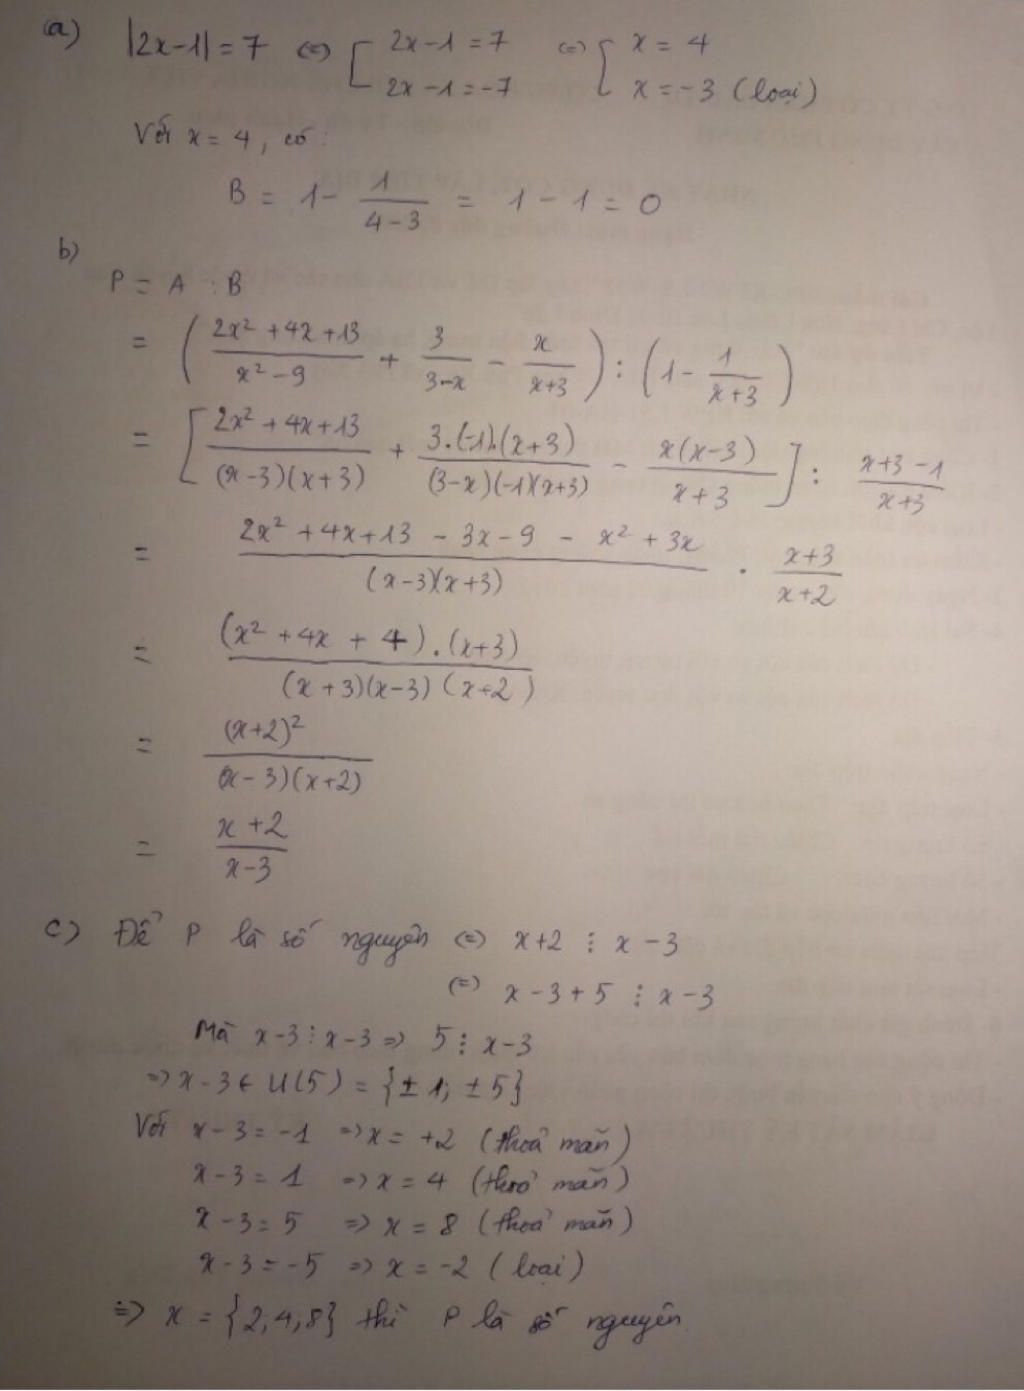 a) |2x-1| = 7 (=) [ 2x-1 = 7 (=) { x = 4
2x-1 = -7 x = -3 (loại)
Với x = 4, có:
B = 1 - 1/(4-3) = 1 - 1 = 0
b)
P = A : B
= ( (2x² + 4x + 13)/(x² - 9) + 3/(3-x) - x/(x+3) ) : (1 - 1/(x+3))
= [ (2x² + 4x + 13)/((x-3)(x+3)) + (3.(-1).(x+3))/((3-x)(-1)(x+3)) - x(x-3)/(x+3) ] : (x+3-1)/(x+3)
= (2x² + 4x + 13 - 3x - 9 - x² + 3x)/((x-3)(x+3)) . (x+3)/(x+2)
= ((x² + 4x + 4).(x+3))/((x+3)(x-3)(x+2))
= (x+2)²/((x-3)(x+2))
= (x+2)/(x-3)
c) Để P là số nguyên (=) x+2 ⋮ x-3
(=) x-3+5 ⋮ x-3
Mà x-3 ⋮ x-3 => 5 ⋮ x-3
=> x-3 ∈ U(5) = {±1; ±5}
Với x-3 = -1 => x = +2 (thoả mãn)
x-3 = 1 => x = 4 (thoả mãn)
x-3 = 5 => x = 8 (thoả mãn)
x-3 = -5 => x = -2 (loại)
=> x = {2,4,8} thì P là số nguyên